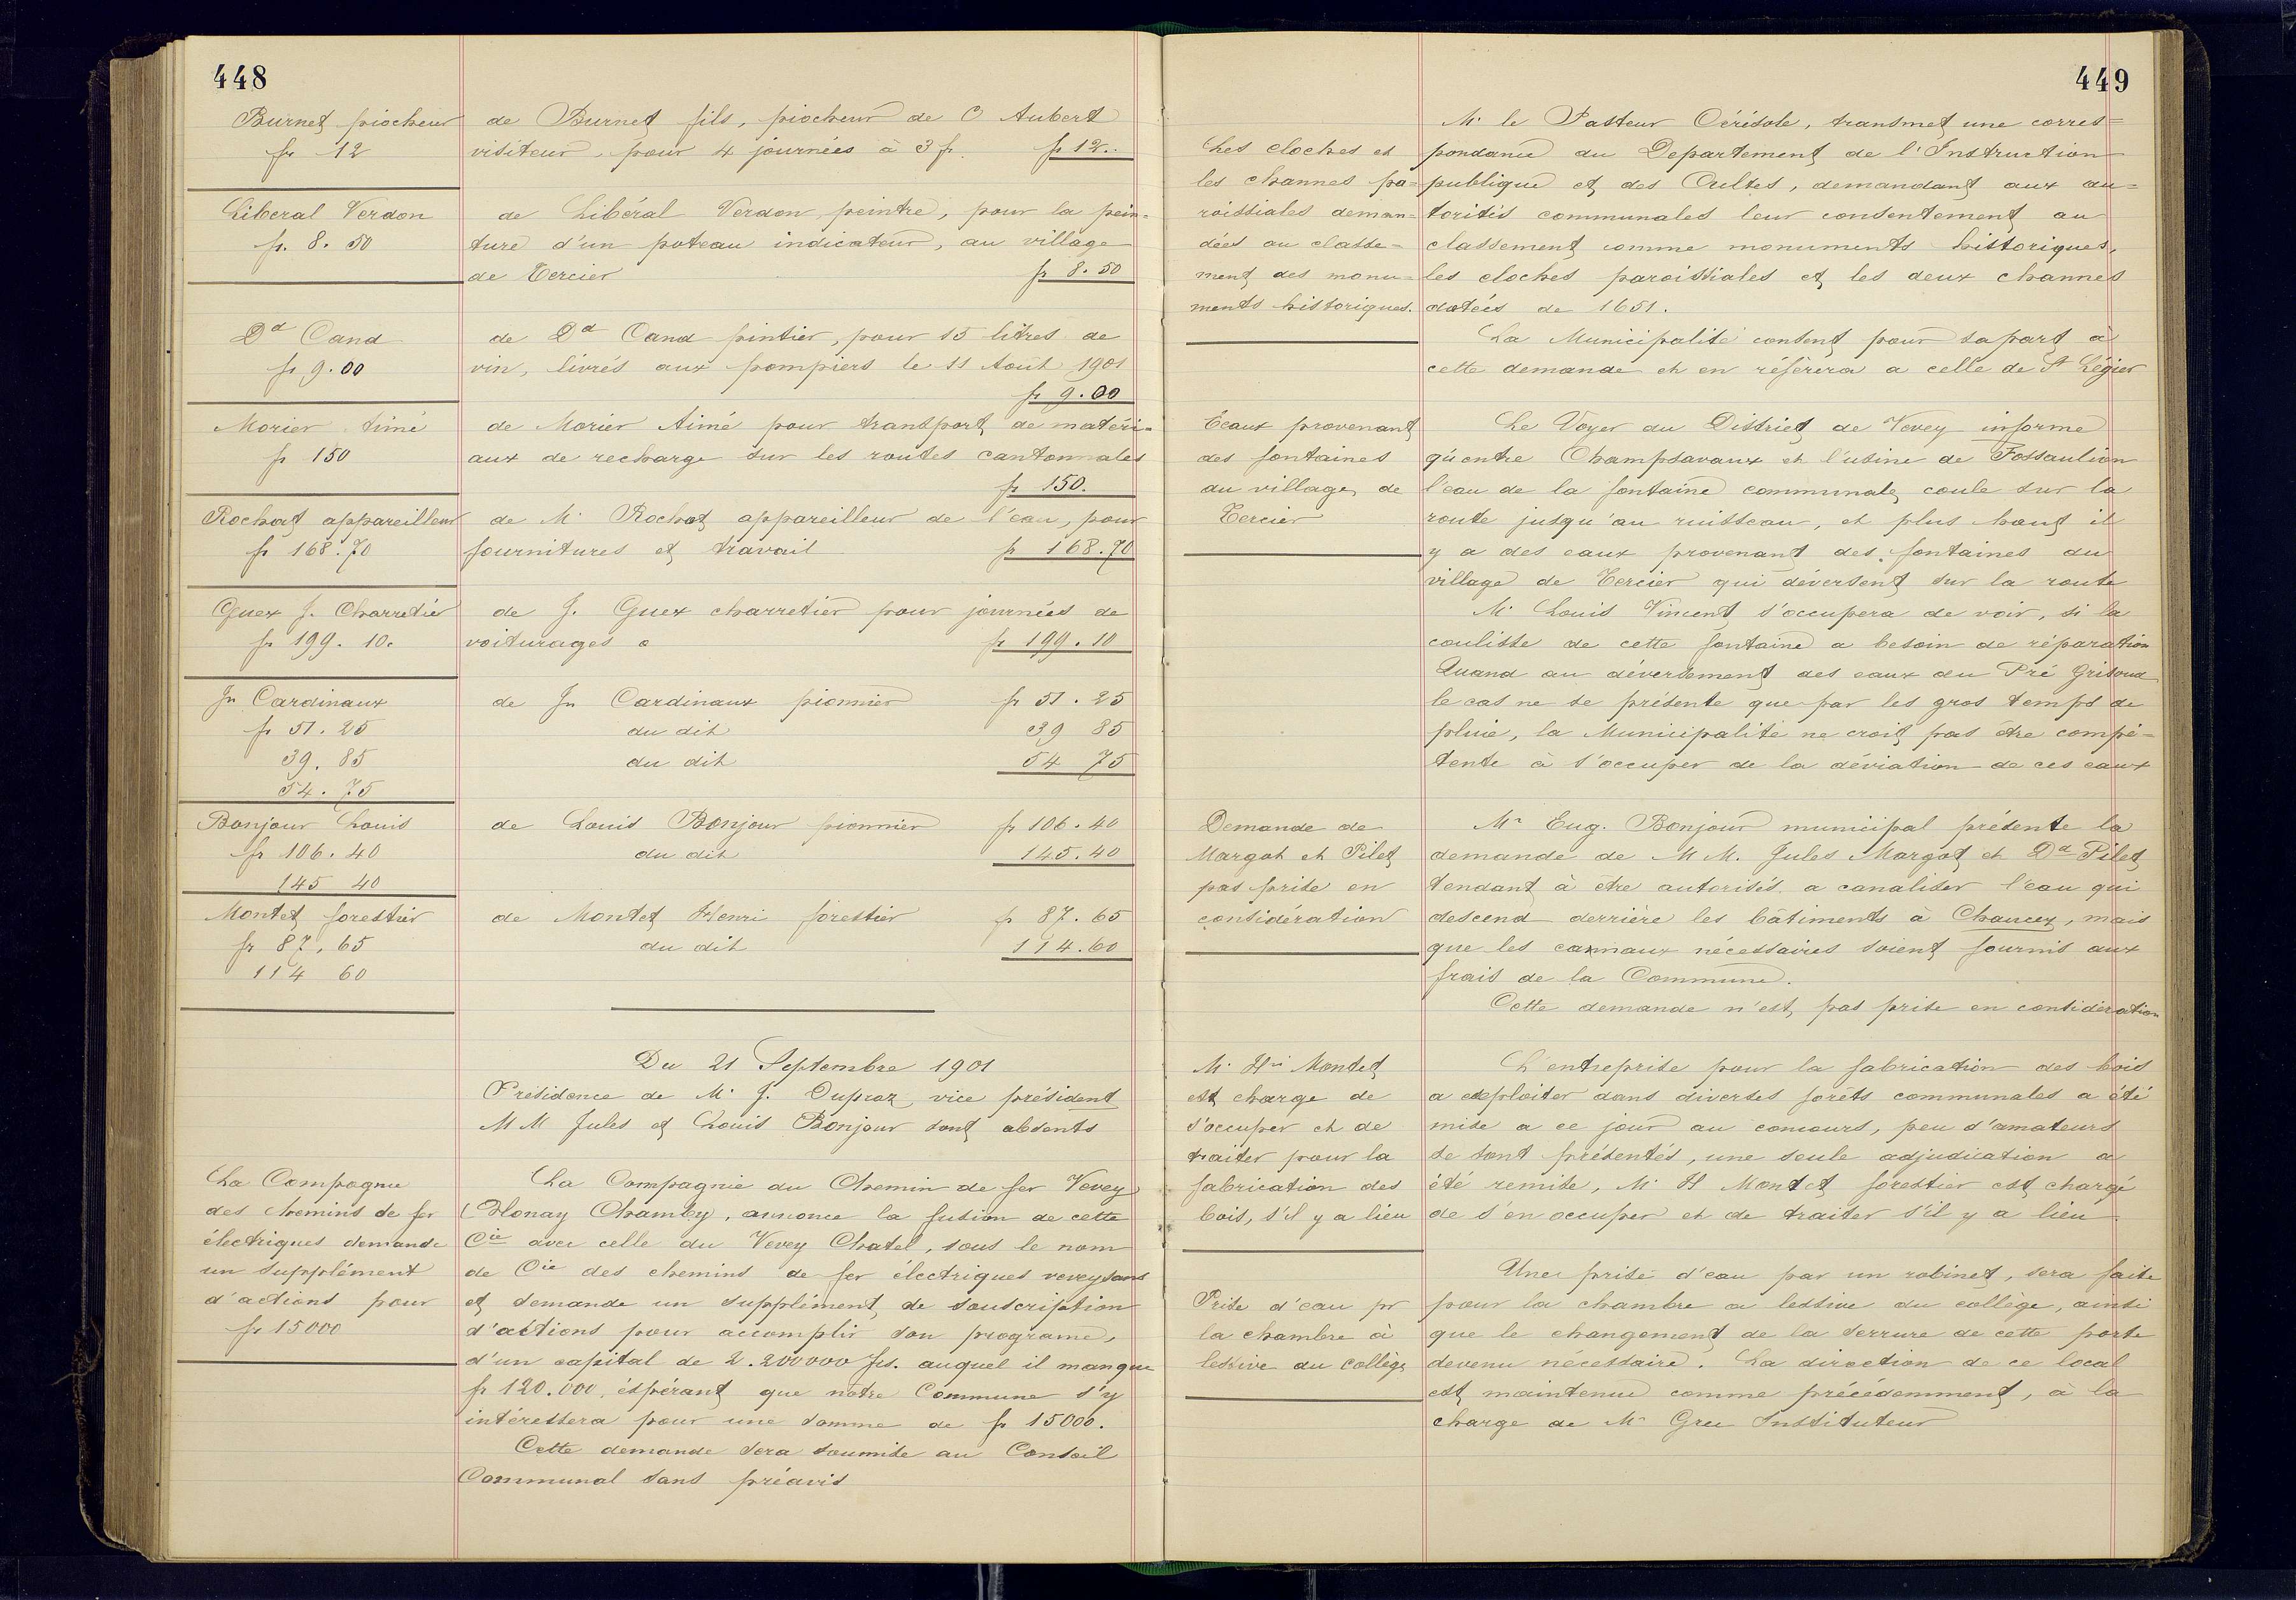 448
Burnet piocheur
fr 12
de Burnet fils, piocheur de C Aubert
visiteur, pour 4 journées à 3 fr. fr 12..
Libéral Verdon
fr. 8. 50
de Libéral Verdon peintre, pour la pein-
ture d'un poteau indicateur, au village
de Tercier fr 8. 50
Dd Cand
fr 9.00
de Dd Cand pintier, pour 15 litres de
vin, livrés aux pompiers le 11 Août 1901
fr 9.00
Morier Aimé
fr 150
de Morier Aimé pour transport de matéri-
aux de recharge sur les routes cantonnales
fr 150.
Rochat appareilleur
fr 168.70
de Mr Rochat appareilleur de l'eau, pour
fournitures et travail fr 168.70
Guex J. Charretier
fr 199. 10.
de J. Guex charretier pour journées de
voiturages fr 199.10
Jn Cardinaux
fr 51. 25
39. 85
54. 75
de Jn Cardinaux pionnier fr 51. 25
du dit 39 85
du dit 54 75
Bonjour Louis
fr 106. 40
145 40
de Louis Bonjour pionnier fr 106. 40
du dit 145. 40
Montet forestier
fr 87. 65
114 60
de Montet Henri forestier fr 87. 65
du dit 114.60
Du 21 Septembre 1901
Présidence de Mr J. Dupraz, vice président
M M Jules et Louis Bonjour sont absents
La Compagnie
des chemins de fer
électriques demande
un supplément
d'actions pour
fr 15000
La Compagnie du Chemin de fer Vevey
Blonay Chamby, annonce la fusion de cette
Cie avec celle du Vevey Chatel, sous le nom
de Cie des chemins de fer électriques veveysans
et demande un supplément de souscription
d'actions pour accomplir son programe,
d'un capital de 2.200000 frs. auquel il manque
fr 120.000, éspérant que notre Commune s'y
intéressera pour une somme de fr 15000.
Cette demande sera soumise au Conseil
Communal sans préavis
449
Les cloches et
les channes pa=
roissiales deman=
dées au classe=
ment des monu=
ments historiques.
Mr le Pasteur Cérésole, transmet une corres=
pondance du Departement de l'Instruction
publique et des Cultes, demandant aux au=
torités communales leur consentement au
classement comme monuments historiques,
les cloches paroissiales et les deux channes
datées de 1651.
La Municipalité consent pour sa part à
cette demande et en réfèrera a celle de St Légier
Eeaux provenant
des fontaines
du village de
Tercier
Le Voyer du District de Vevey informe
qu'entre Champsavaux et l'usine de Fossaulion
l'eau de la fontaine communale, coule sur la
route jusqu'au ruisseau, et plus haut il
y a des eaux provenant des fontaines du
village de Tercier qui déversent sur la route
Mr Louis Vincent s'occupera de voir, si la
coulisse de cette fontaine a besoin de réparation
Quand au déversement des eaux du Pré Grisoud
le cas ne se présente que par les gros temps de
pluie, la Municipalité ne croit pas être compé=
tente à s'occuper de la déviation de ces eaux
Demande de
Margot et Pilet
pas prise en
considération
Mr Eug. Bonjour municipal présente la
demande de M M. Jules Margot et Dd Pilet
tendant à être autorisés a canaliser l'eau qui
descend derrière les bâtiments à Chaucey, mais
que les cannaux nécessaires soient fournis aux
frais de la Commune.
Cette demande n'est pas prise en considération
Mr Hri Montet
est charge de
s'occuper et de
traiter pour la
fabrication des
bois, s'il y a lieu
L'entreprise pour la fabrication des bois
a exploiter dans diverses forêts communales a été
mise a ce jour au concours, peu d'amateurs
se sont présentés, une seule adjudication a
été remise, Mr H Montet forestier est chargé
de s'en occuper et de traiter s'il y a lieu
Prise d'eau pr
la chambre à
lessive du collège
Une prise d'eau par un robinet, sera faite
pour la chambre a lessive du collège, ainsi
que le changement de la serrure de cette porte
devenu nécessaire. La direction de ce local
est maintenue comme précédemment, à la
charge de Mr Grec Instituteur